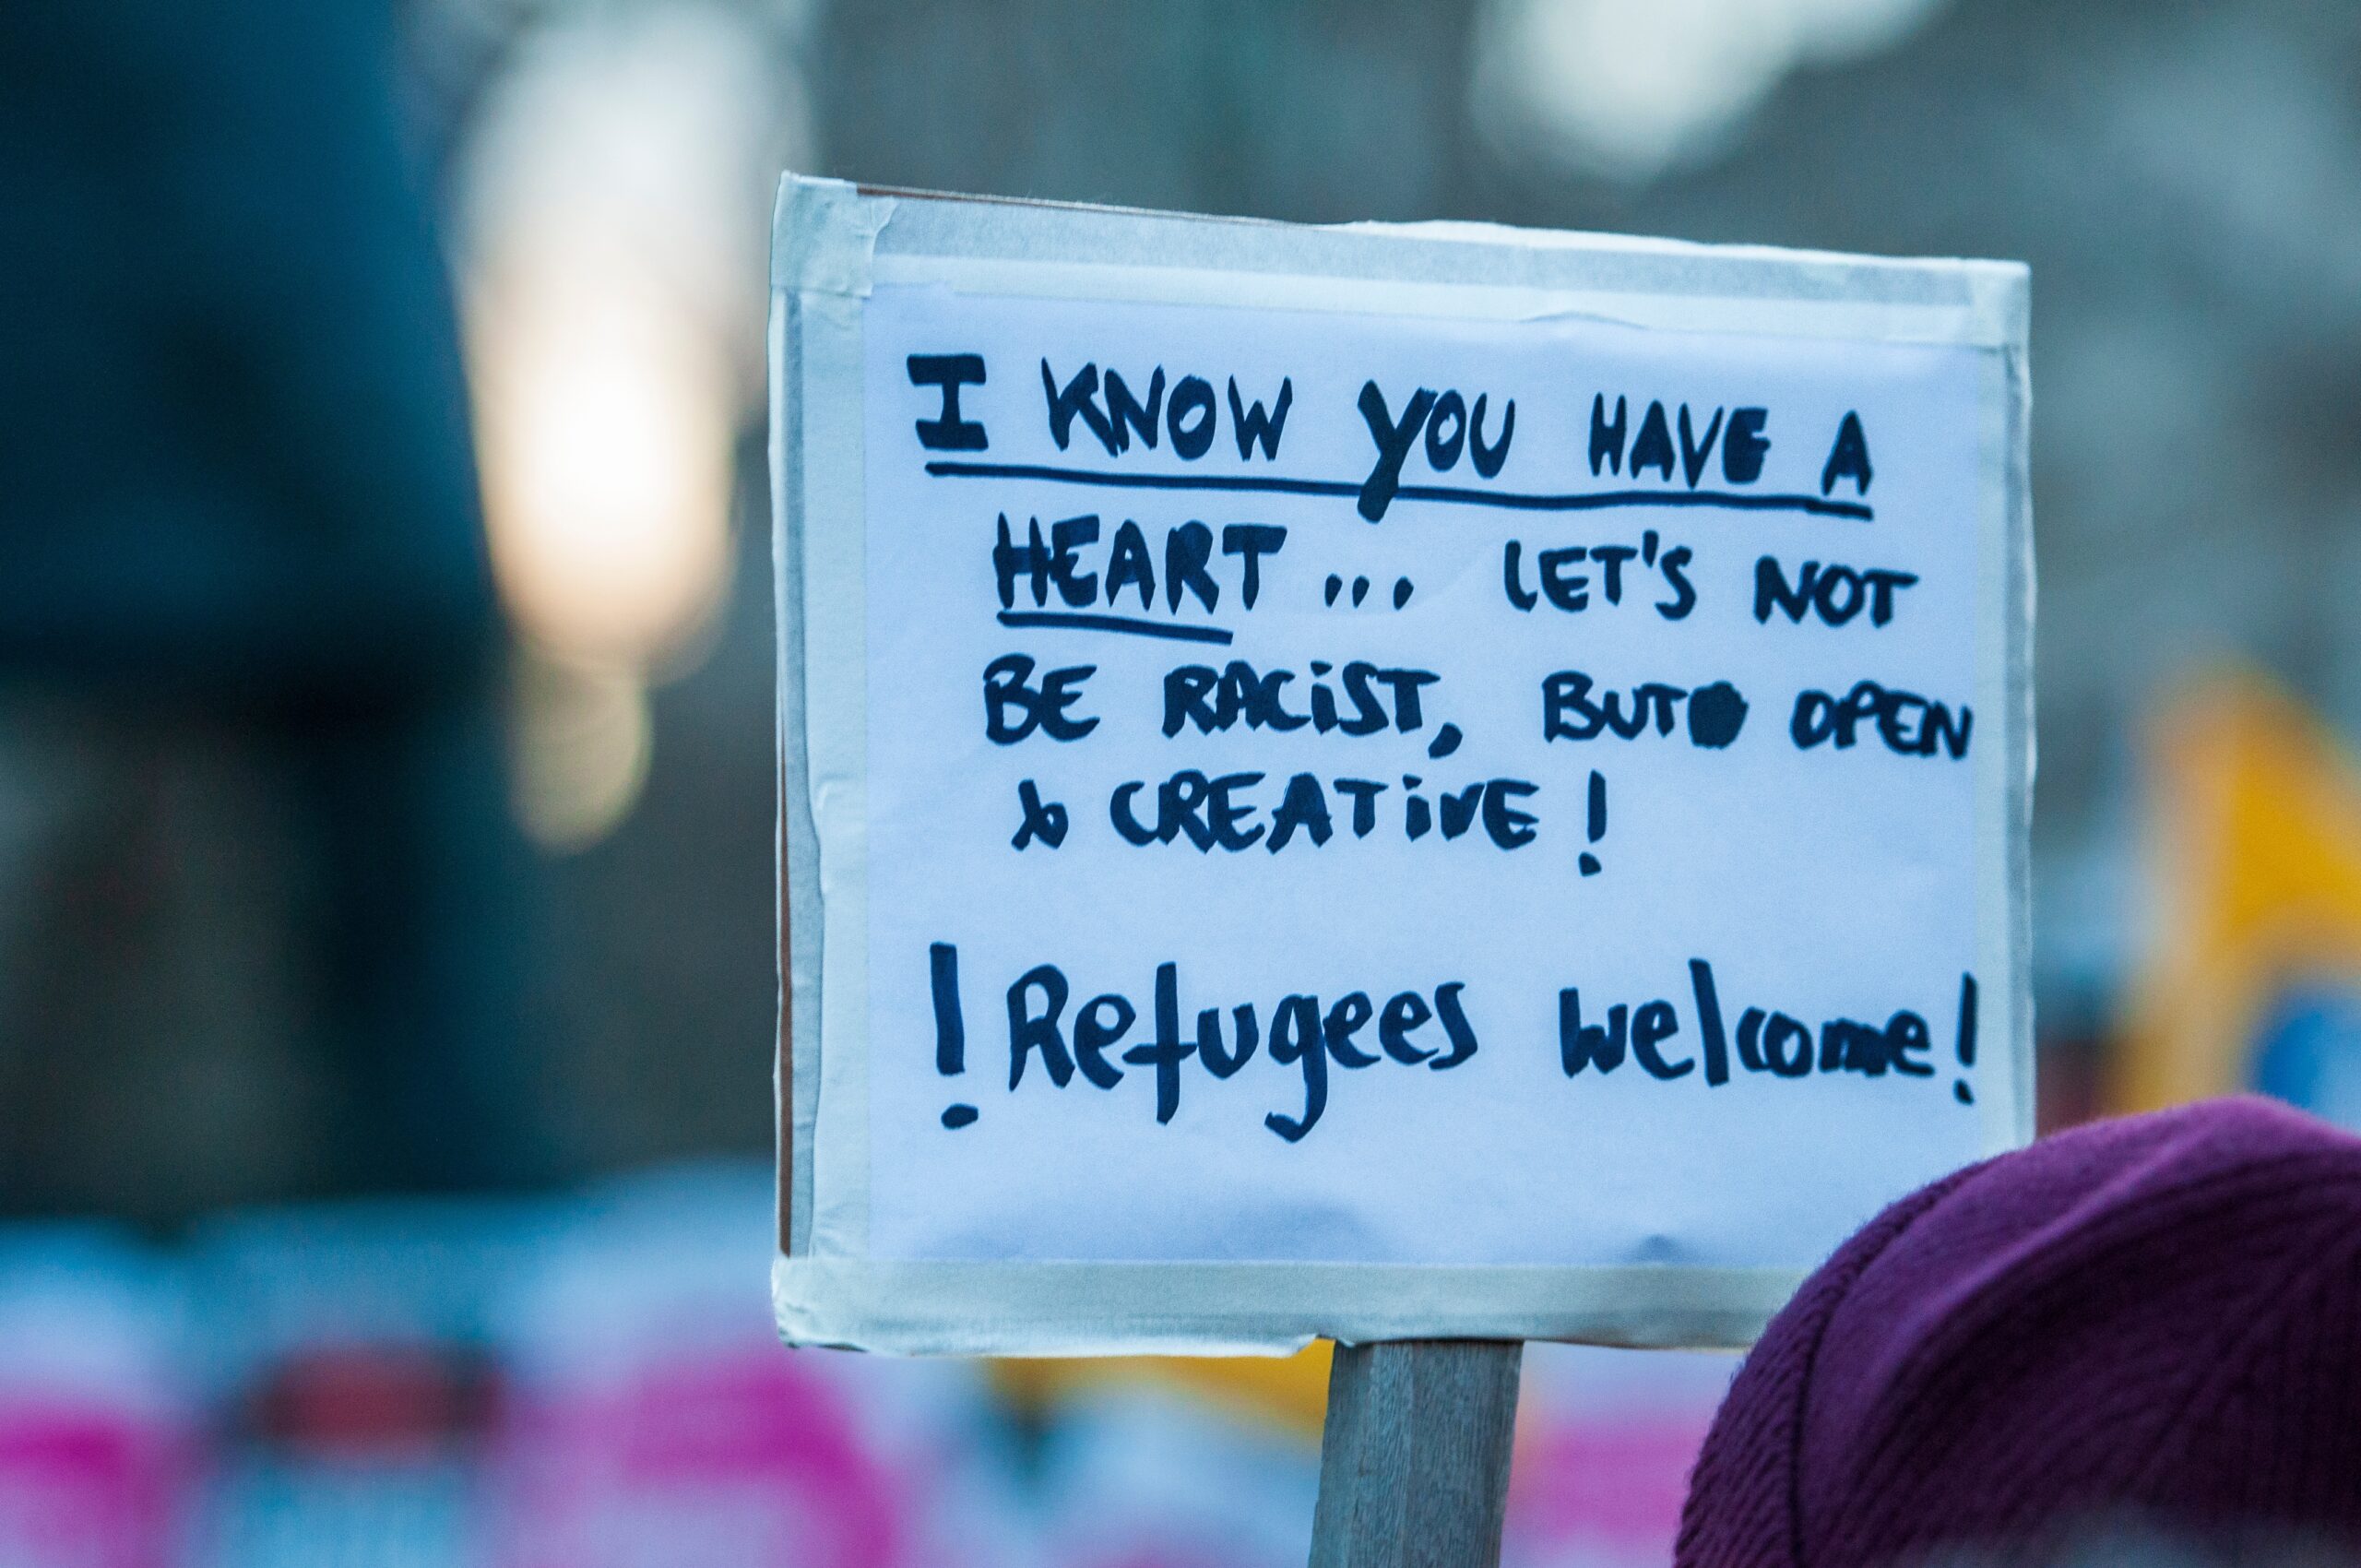 I KNOW YOU HAVE A
HEART... LET'S NOT
BE RACIST, BUT OPEN
& CREATIVE!
! Refugees welcome!